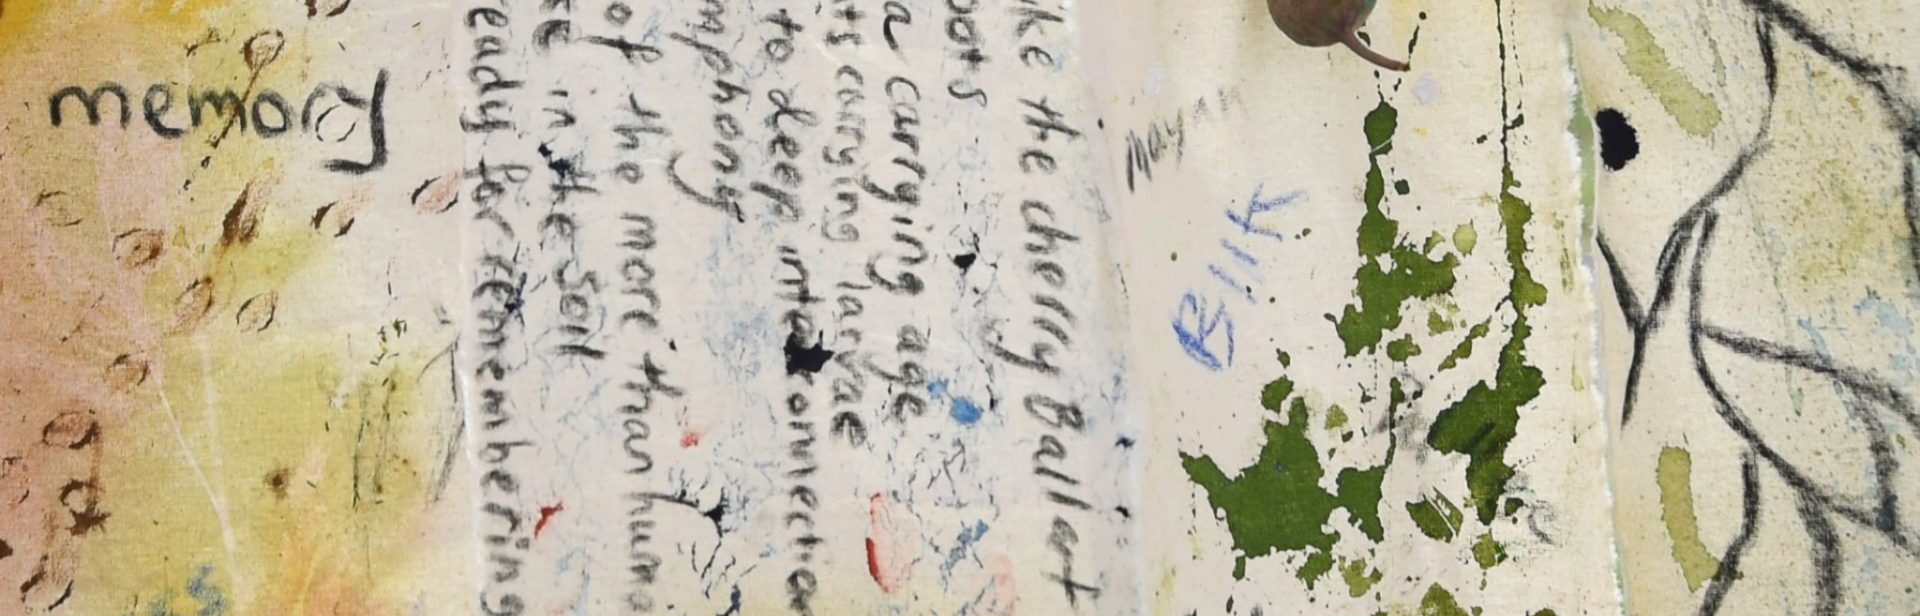 memory
ike the cherry Ballart
oots
a carrying age
its carrying larvae
to deep interconnection
mphony
of the more than huma
ee in the soil
ready for remembering
BIIK